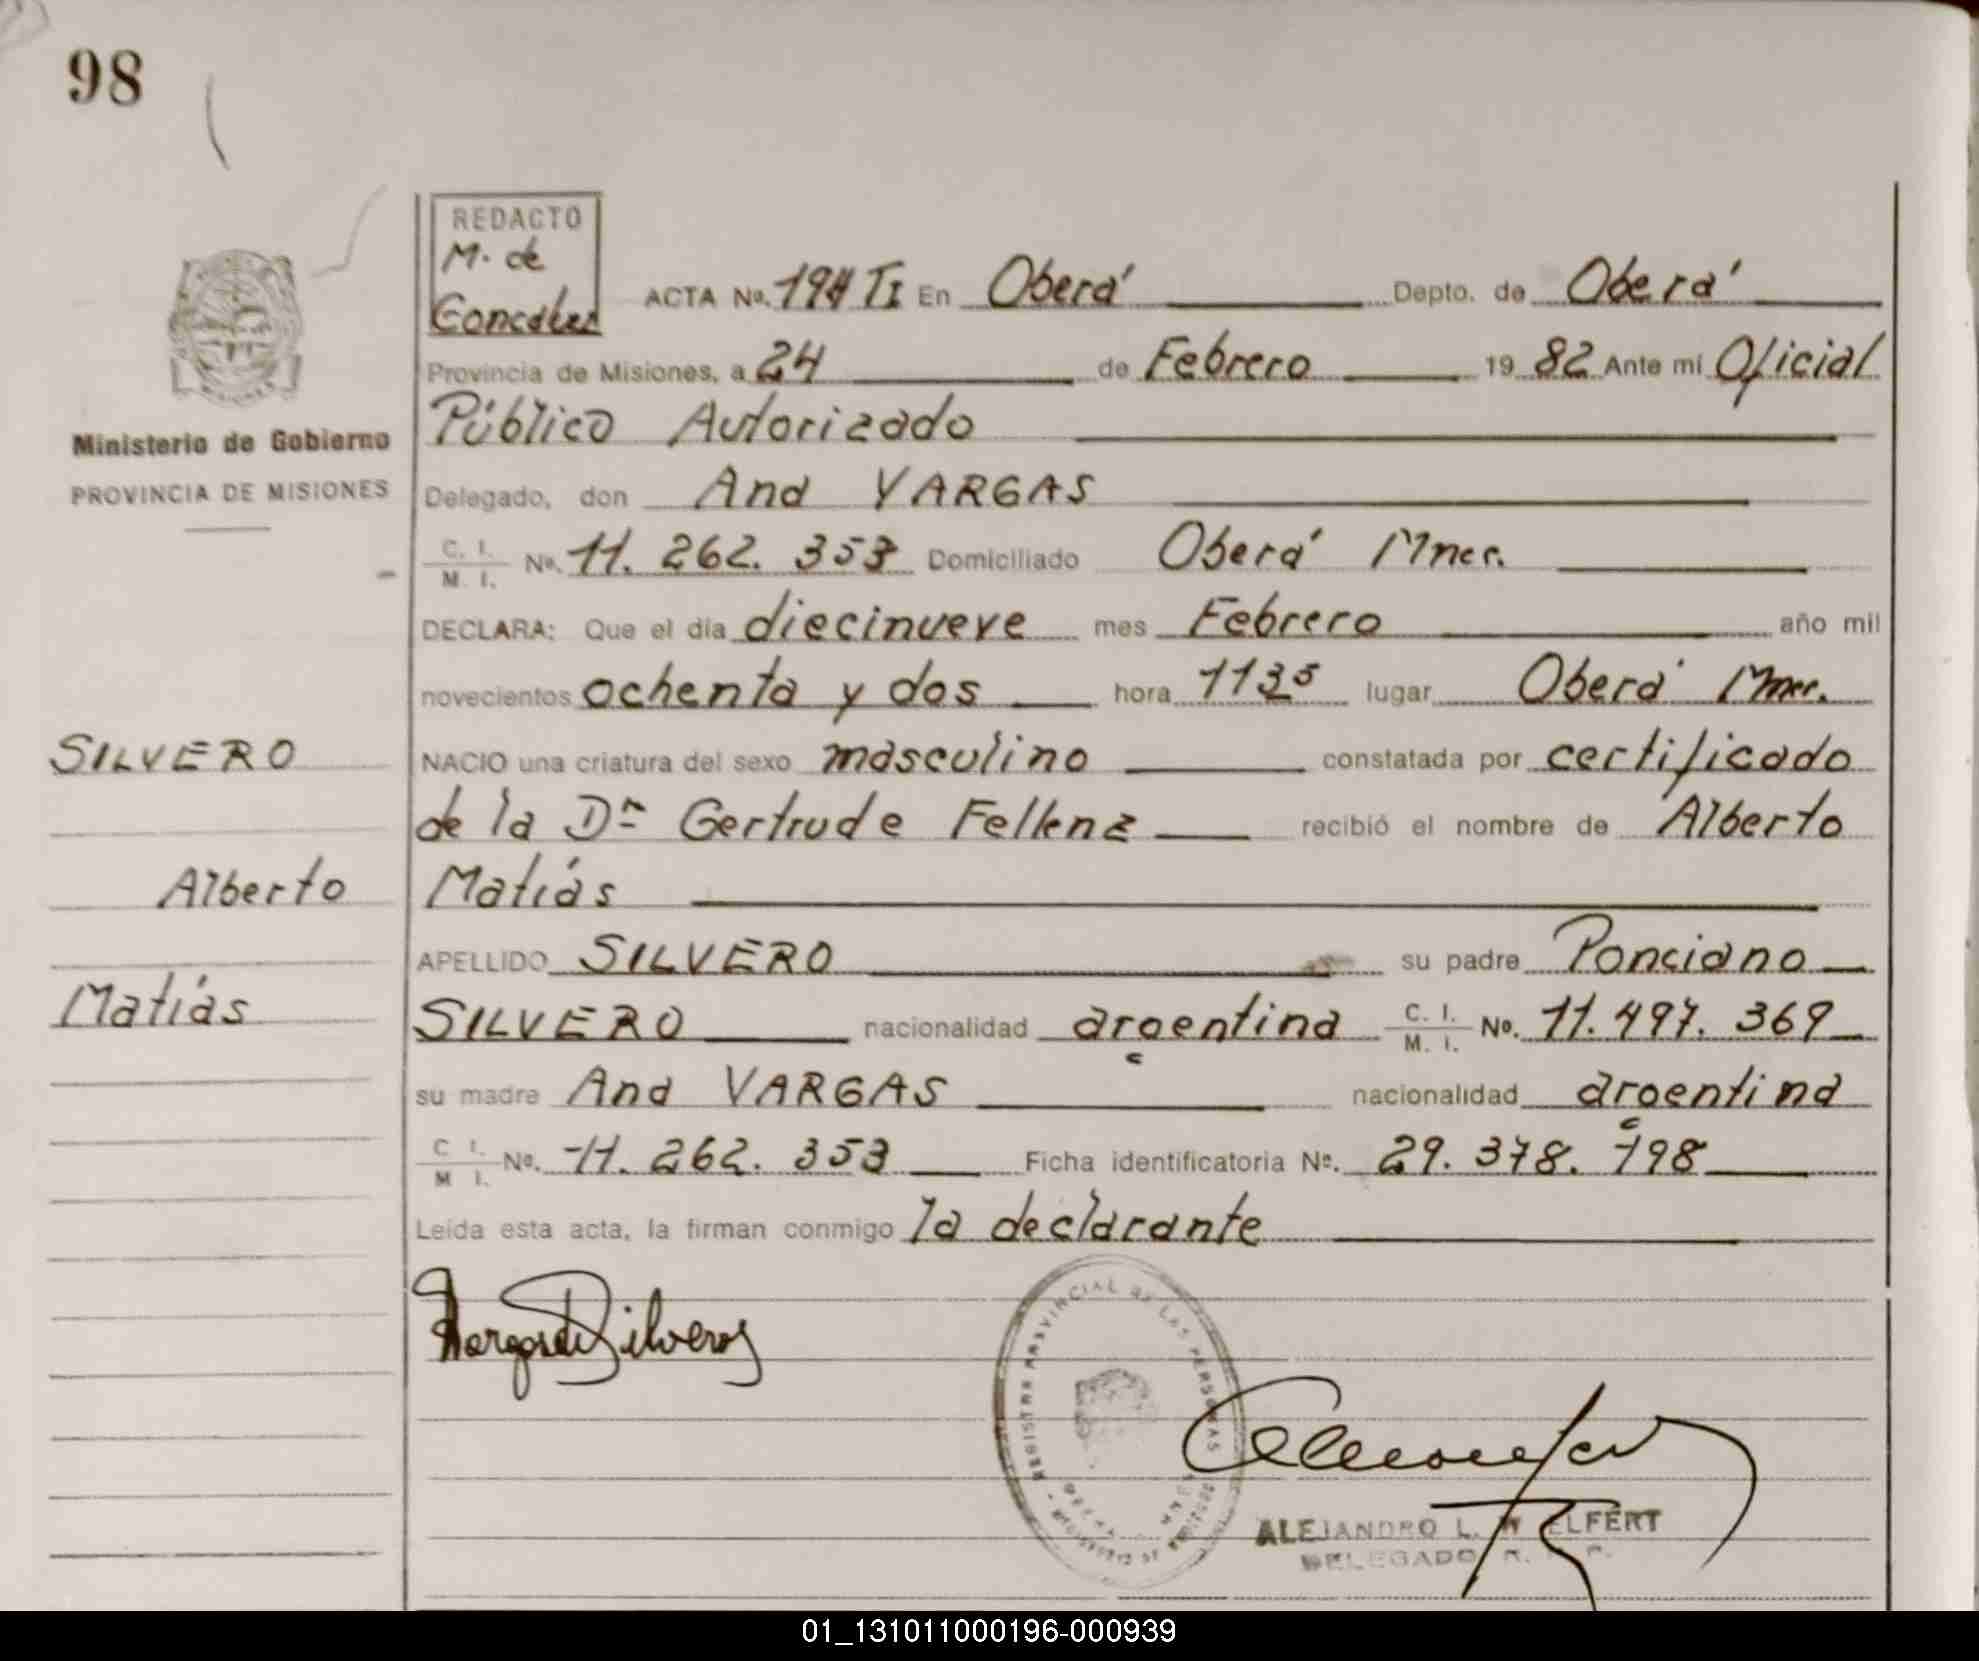 98
REDACTO
M. de
Gonzalez
ACTA No. 194 TI En Oberá Depto. de Oberá
Provincia de Misiones, a 24 de Febrero 19 82 Ante mí Oficial
Ministerio de Gobierno
PROVINCIA DE MISIONES
Público Autorizado
Delegado, don Ana VARGAS
C. I. M. I. No. 11. 262. 353 Domiciliado Oberá Mnes.
DECLARA: Que el día diecinueve mes Febrero año mil
novecientos ochenta y dos hora 11 35 lugar Oberá Mnes.
SILVERO
NACIO una criatura del sexo masculino constatada por certificado
de la Dra Gertrude Fellenz recibió el nombre de Alberto
Alberto
Matías
APELLIDO SILVERO su padre Ponciano
Matías
SILVERO nacionalidad argentina C. I. M. I. No. 11. 497. 369
su madre Ana VARGAS nacionalidad argentina
C I. M I. No. 11. 262. 353 Ficha identificatoria No. 29. 378. 798
Leída esta acta, la firman conmigo la declarante
REGISTRO PROVINCIAL DE LAS PERSONAS
ALEJANDRO L.
DELEGADO R.
01_131011000196-000939